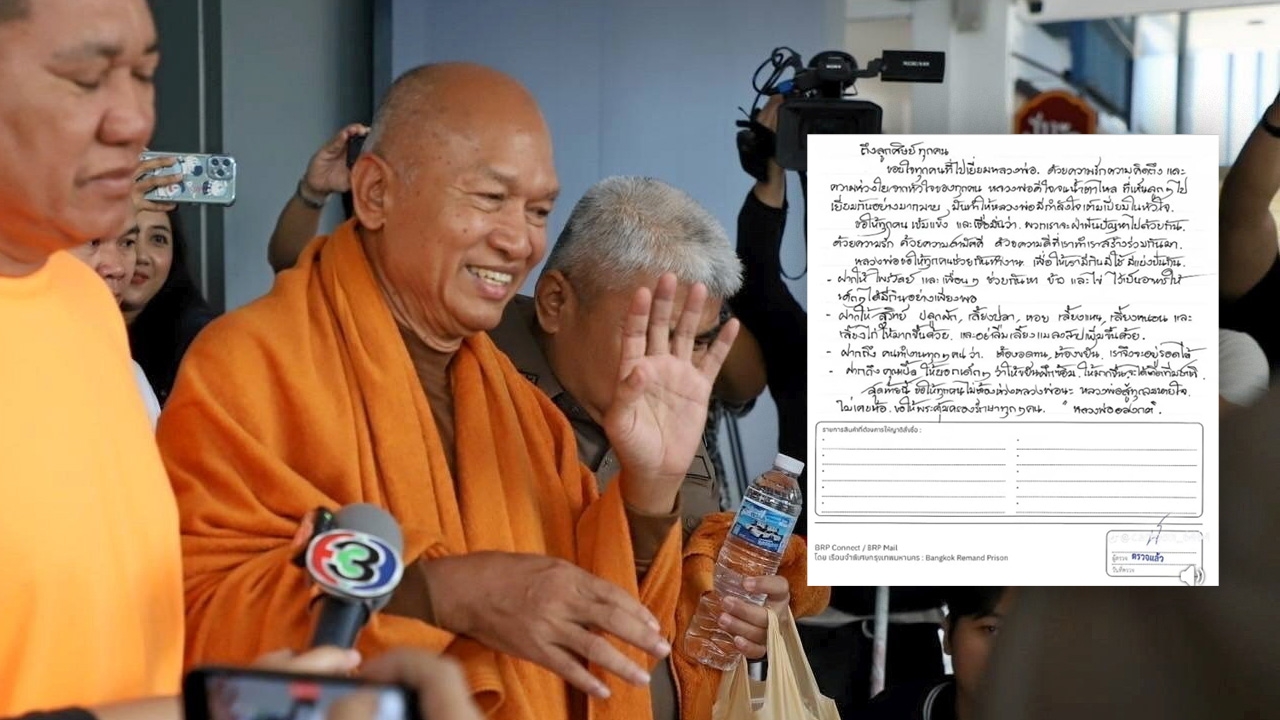 SONY
3
ถึงลูกศิษย์ทุกคน
ขอบใจทุกคนที่ไปเยี่ยมหลวงพ่อ. ด้วยความรักความคิดถึง และ
ความห่วงใยจากหัวใจของทุกคน หลวงพ่อดีใจจนน้ำตาไหล ที่เห็นลูกๆไป
เยี่ยมกันอย่างมากมาย, มันทำให้หลวงพ่อมีกำลังใจเต็มเปี่ยมในหัวใจ.
ขอให้ทุกคน เข้มแข็ง และเชื่อมั่นว่า. พวกเราจะฝ่าฟันปัญหาไปด้วยกัน.
ด้วยความรัก ด้วยความสามัคคี ด้วยความดีที่เราทำเราสร้างร่วมกันมา.
หลวงพ่อขอให้ทุกคนช่วยกันทำงาน เพื่อให้เรามีกินมีใช้ มีแบ่งปันกัน.
- ฝากให้ ไพรวัลย์ และเพื่อนๆ ช่วยกันหา ข้าว และไข่ ไว้เป็นอาหารให้
เด็กๆได้มีกินอย่างเพียงพอ
- ฝากให้ สุวิทย์ ปลูกผัก, เลี้ยงปลา, หอย เลี้ยงแหน, เลี้ยงหนอน และ
เลี้ยงไก่ ให้มากขึ้นด้วย. และอย่าลืมเลี้ยงแมลงสาปเพิ่มขึ้นด้วย.
- ฝากถึง คนทำงานทุกๆคนว่า. ต้องอดทน, ต้องขยัน, เราจึงจะอยู่รอดได้
- ฝากถึง ให้บอกเด็กๆ ว่าให้ขยันฝึกซ้อม ให้มากขึ้นจะได้ติดทีมชาติ.
สุดท้ายนี้ ขอให้ทุกคนไม่ต้องห่วงหลวงพ่อนะ หลวงพ่อสู้ทุกลมหายใจ
ไม่เคยท้อ. ขอให้พระคุ้มครองรักษาทุกๆคน. หลวงพ่ออลงกต.
รายการสินค้าที่ต้องการให้ญาติสั่งซื้อ :
BRP Connect / BRP Mail
โดย เรือนจำพิเศษกรุงเทพมหานคร : Bangkok Remand Prison
ผู้ตรวจ ตรวจแล้ว
วันที่ตรวจ